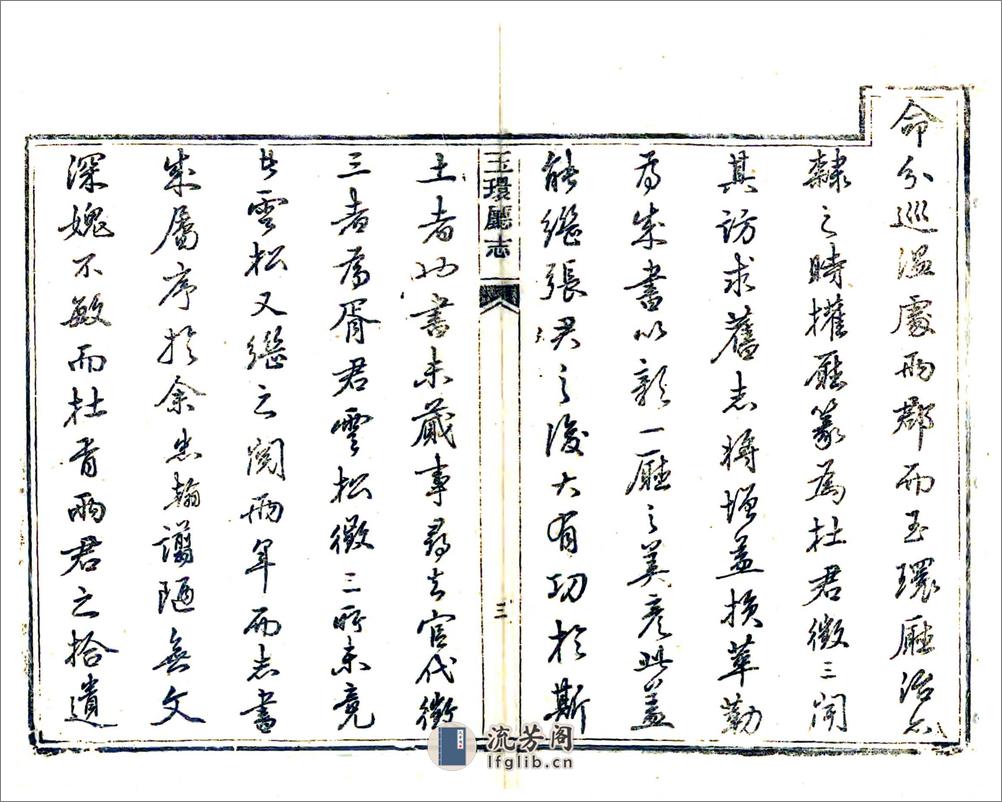 命分巡溫處兩郡而玉環廳治亦
隸之時攝廳篆為杜君徵三聞
其訪求舊志將增益損革勤
為成書以彰一廳之美意此蓋
能繼張君之後大有功於斯
玉環廳志
三
土者也書未蕆事尋去官代徵
三者為胥君雲松徵三所未竟
者雲松又繼之閱兩年而志書
成屬序於余忠翰譾陋無文
深媿不敏而杜胥兩君之拾遺
流芳阁
lfglib.cn